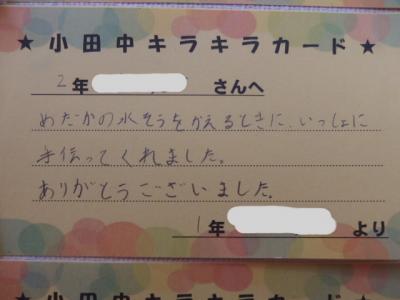 ★小田中キラキラカード★
2年 さんへ
めだかの水そうをかえるときに、いっしょに
手伝ってくれました。
ありがとうございました。
1年 より
★小田中キラキラカード★